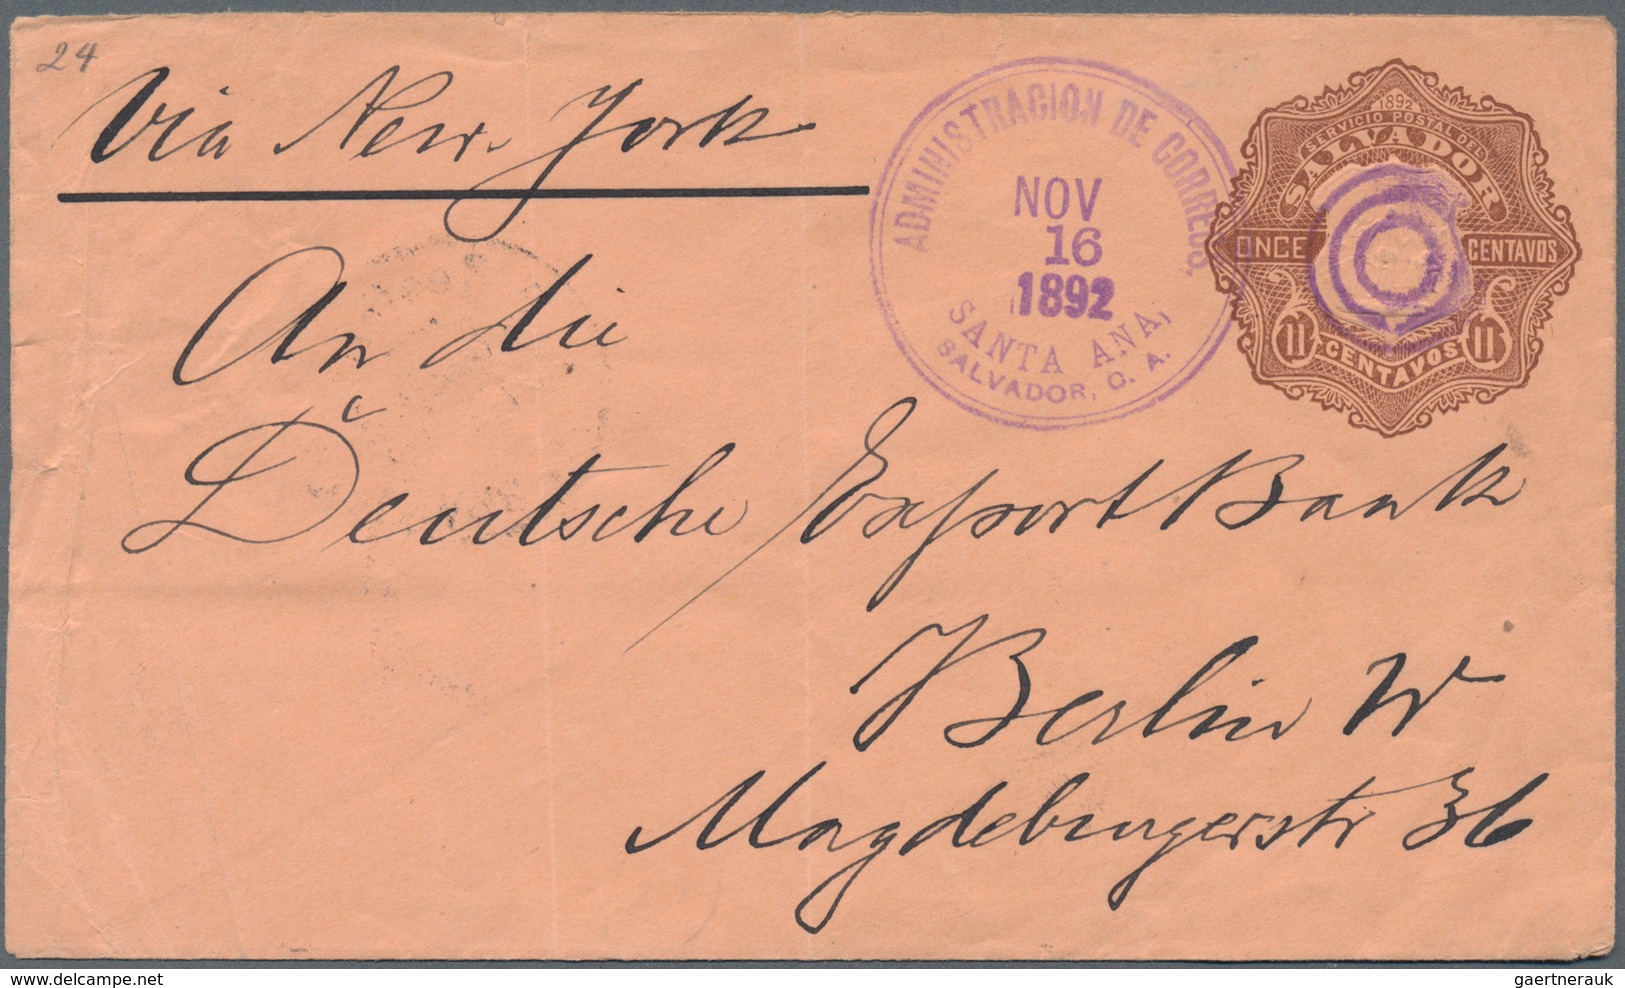 24
Via New-York
ADMINISTRACION DE CORREOS.
NOV
16
1892
SANTA ANA,
SALVADOR, C. A.
1892
SERVICIO POSTAL DEL
SALVADOR
ONCE CENTAVOS
11 CENTAVOS 11
An die
Deutsche Export Bank
Berlin W
Magdeburgerstr 36
delcampe.net
gaertnerauk